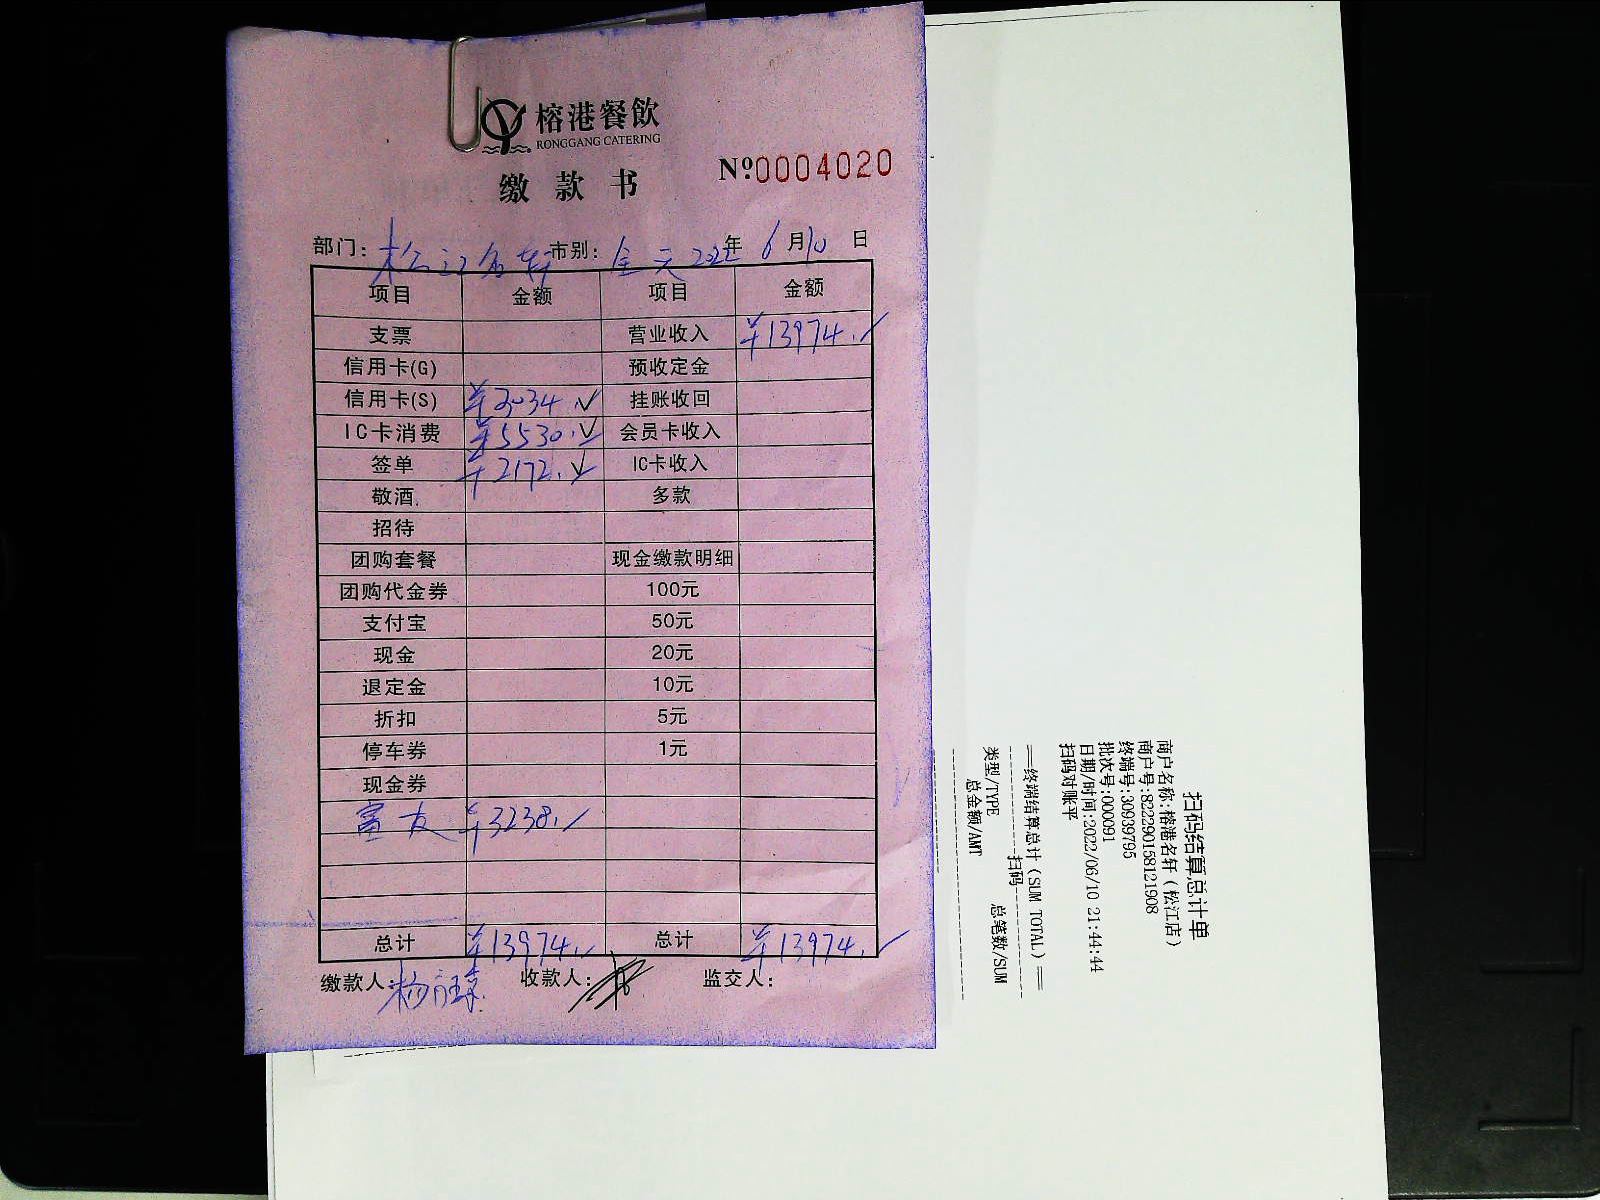 榕港餐飲
RONGGANG CATERING
缴款书
№0004020
部门: 松江名轩 市别: 全天 2022年 6月10日
项目 金额 项目 金额
支票 营业收入 ¥13974.
信用卡(G) 预收定金
信用卡(S) ¥3034. 挂账收回
IC卡消费 ¥5530. 会员卡收入
签单 ¥2172. IC卡收入
敬酒 多款
招待
团购套餐 现金缴款明细
团购代金券 100元
支付宝 50元
现金 20元
退定金 10元
折扣 5元
停车券 1元
现金券
富友 ¥3238.
总计 ¥13974. 总计 ¥13974.
缴款人: 杨 收款人: 监交人:
扫码结算总计单
商户名称:榕港名轩(松江店)
商户号:822290158121908
终端号:30939795
批次号:000091
日期/时间:2022/06/10 21:44:44
扫码对账平
==终端结算总计(SUM TOTAL)==
扫码
类型/TYPE 总笔数/SUM
总金额/AMT